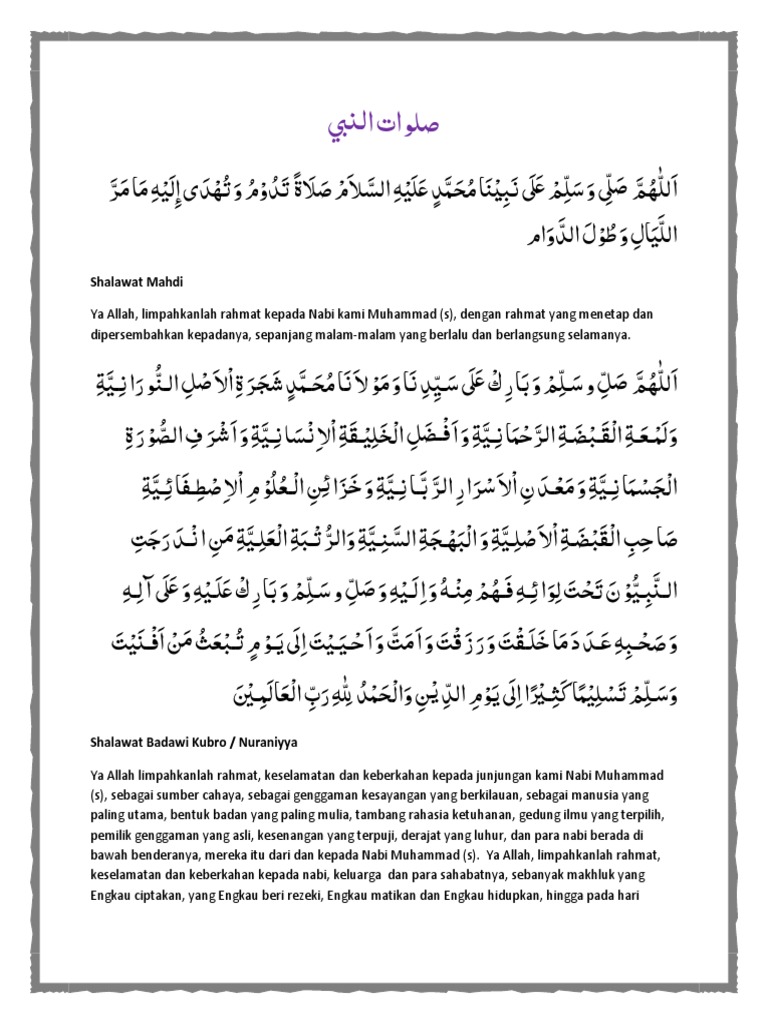 صلوات النبي
اَللّٰهُمَّ صَلِّى وَسَلِّمْ عَلَى نَبِيْنَا مُحَمَّدٍ عَلَيْهِ السَّلاَمْ صَلَاةً تَدُوْمُ وَتُهْدَى إِلَيْهِ مَا مَرَّ
اللَّيَالِ وَطُوْلَ الدَّوَام
Shalawat Mahdi
Ya Allah, limpahkanlah rahmat kepada Nabi kami Muhammad (s), dengan rahmat yang menetap dan
dipersembahkan kepadanya, sepanjang malam-malam yang berlalu dan berlangsung selamanya.
اَللّٰهُمَّ صَلِّ وسَلِّمْ وَبَارِكْ عَلَى سَيِّدِنَا وَمَوْلاَنَا مُحَمَّدٍ شَجَرَةِ اْلاَصْلِ النُّورَانِيَّةِ
وَلَمْعَةِ الْقَبْضَةِ الرَّحْمَانِيَّةِ وَاَفْضَلِ الْخَلِيْقَةِ اْلاِنْسَانِيَّةِ وَاَشْرَفِ الصُّوْرَةِ
الْجَسْمَانِيَّةِ وَمَعْدَنِ اْلاَسْرَارِ الرَّبَّانِيَّةِ وَخَزَائِنِ الْعُلُوْمِ اْلاِصْطِفَائِيَّةِ
صَاحِبِ الْقَبْضَةِ اْلاَصْلِيَّةِ وَالْبَهْجَةِ السَّنِيَّةِ وَالرُّتْبَةِ الْعَلِيَّةِ مَنِ انْدَرَجَتِ
النَّبِيُّوْنَ تَحْتَ لِوَائِهِ فَهُمْ مِنْهُ وَاِلَيْهِ وَصَلِّ وسَلِّمْ وَبَارِكْ عَلَيْهِ وَعَلَى آلِهِ
وَصَحْبِهِ عَدَدَ مَا خَلَقْتَ وَرَزَقْتَ وَاَمَتَّ وَاَحْيَيْتَ اِلَى يَوْمٍ تُبْعَثُ مَنْ اَفْنَيْتَ
وَسَلِّمْ تَسْلِيْمًا كَثِيْرًا اِلَى يَوْمِ الدِّيْنِ وَالْحَمْدُ لِلّٰهِ رَبِّ الْعَالَمِيْنَ
Shalawat Badawi Kubro / Nuraniyya
Ya Allah limpahkanlah rahmat, keselamatan dan keberkahan kepada junjungan kami Nabi Muhammad
(s), sebagai sumber cahaya, sebagai genggaman kesayangan yang berkilauan, sebagai manusia yang
paling utama, bentuk badan yang paling mulia, tambang rahasia ketuhanan, gedung ilmu yang terpilih,
pemilik genggaman yang asli, kesenangan yang terpuji, derajat yang luhur, dan para nabi berada di
bawah benderanya, mereka itu dari dan kepada Nabi Muhammad (s).  Ya Allah, limpahkanlah rahmat,
keselamatan dan keberkahan kepada nabi, keluarga  dan para sahabatnya, sebanyak makhluk yang
Engkau ciptakan, yang Engkau beri rezeki, Engkau matikan dan Engkau hidupkan, hingga pada hari